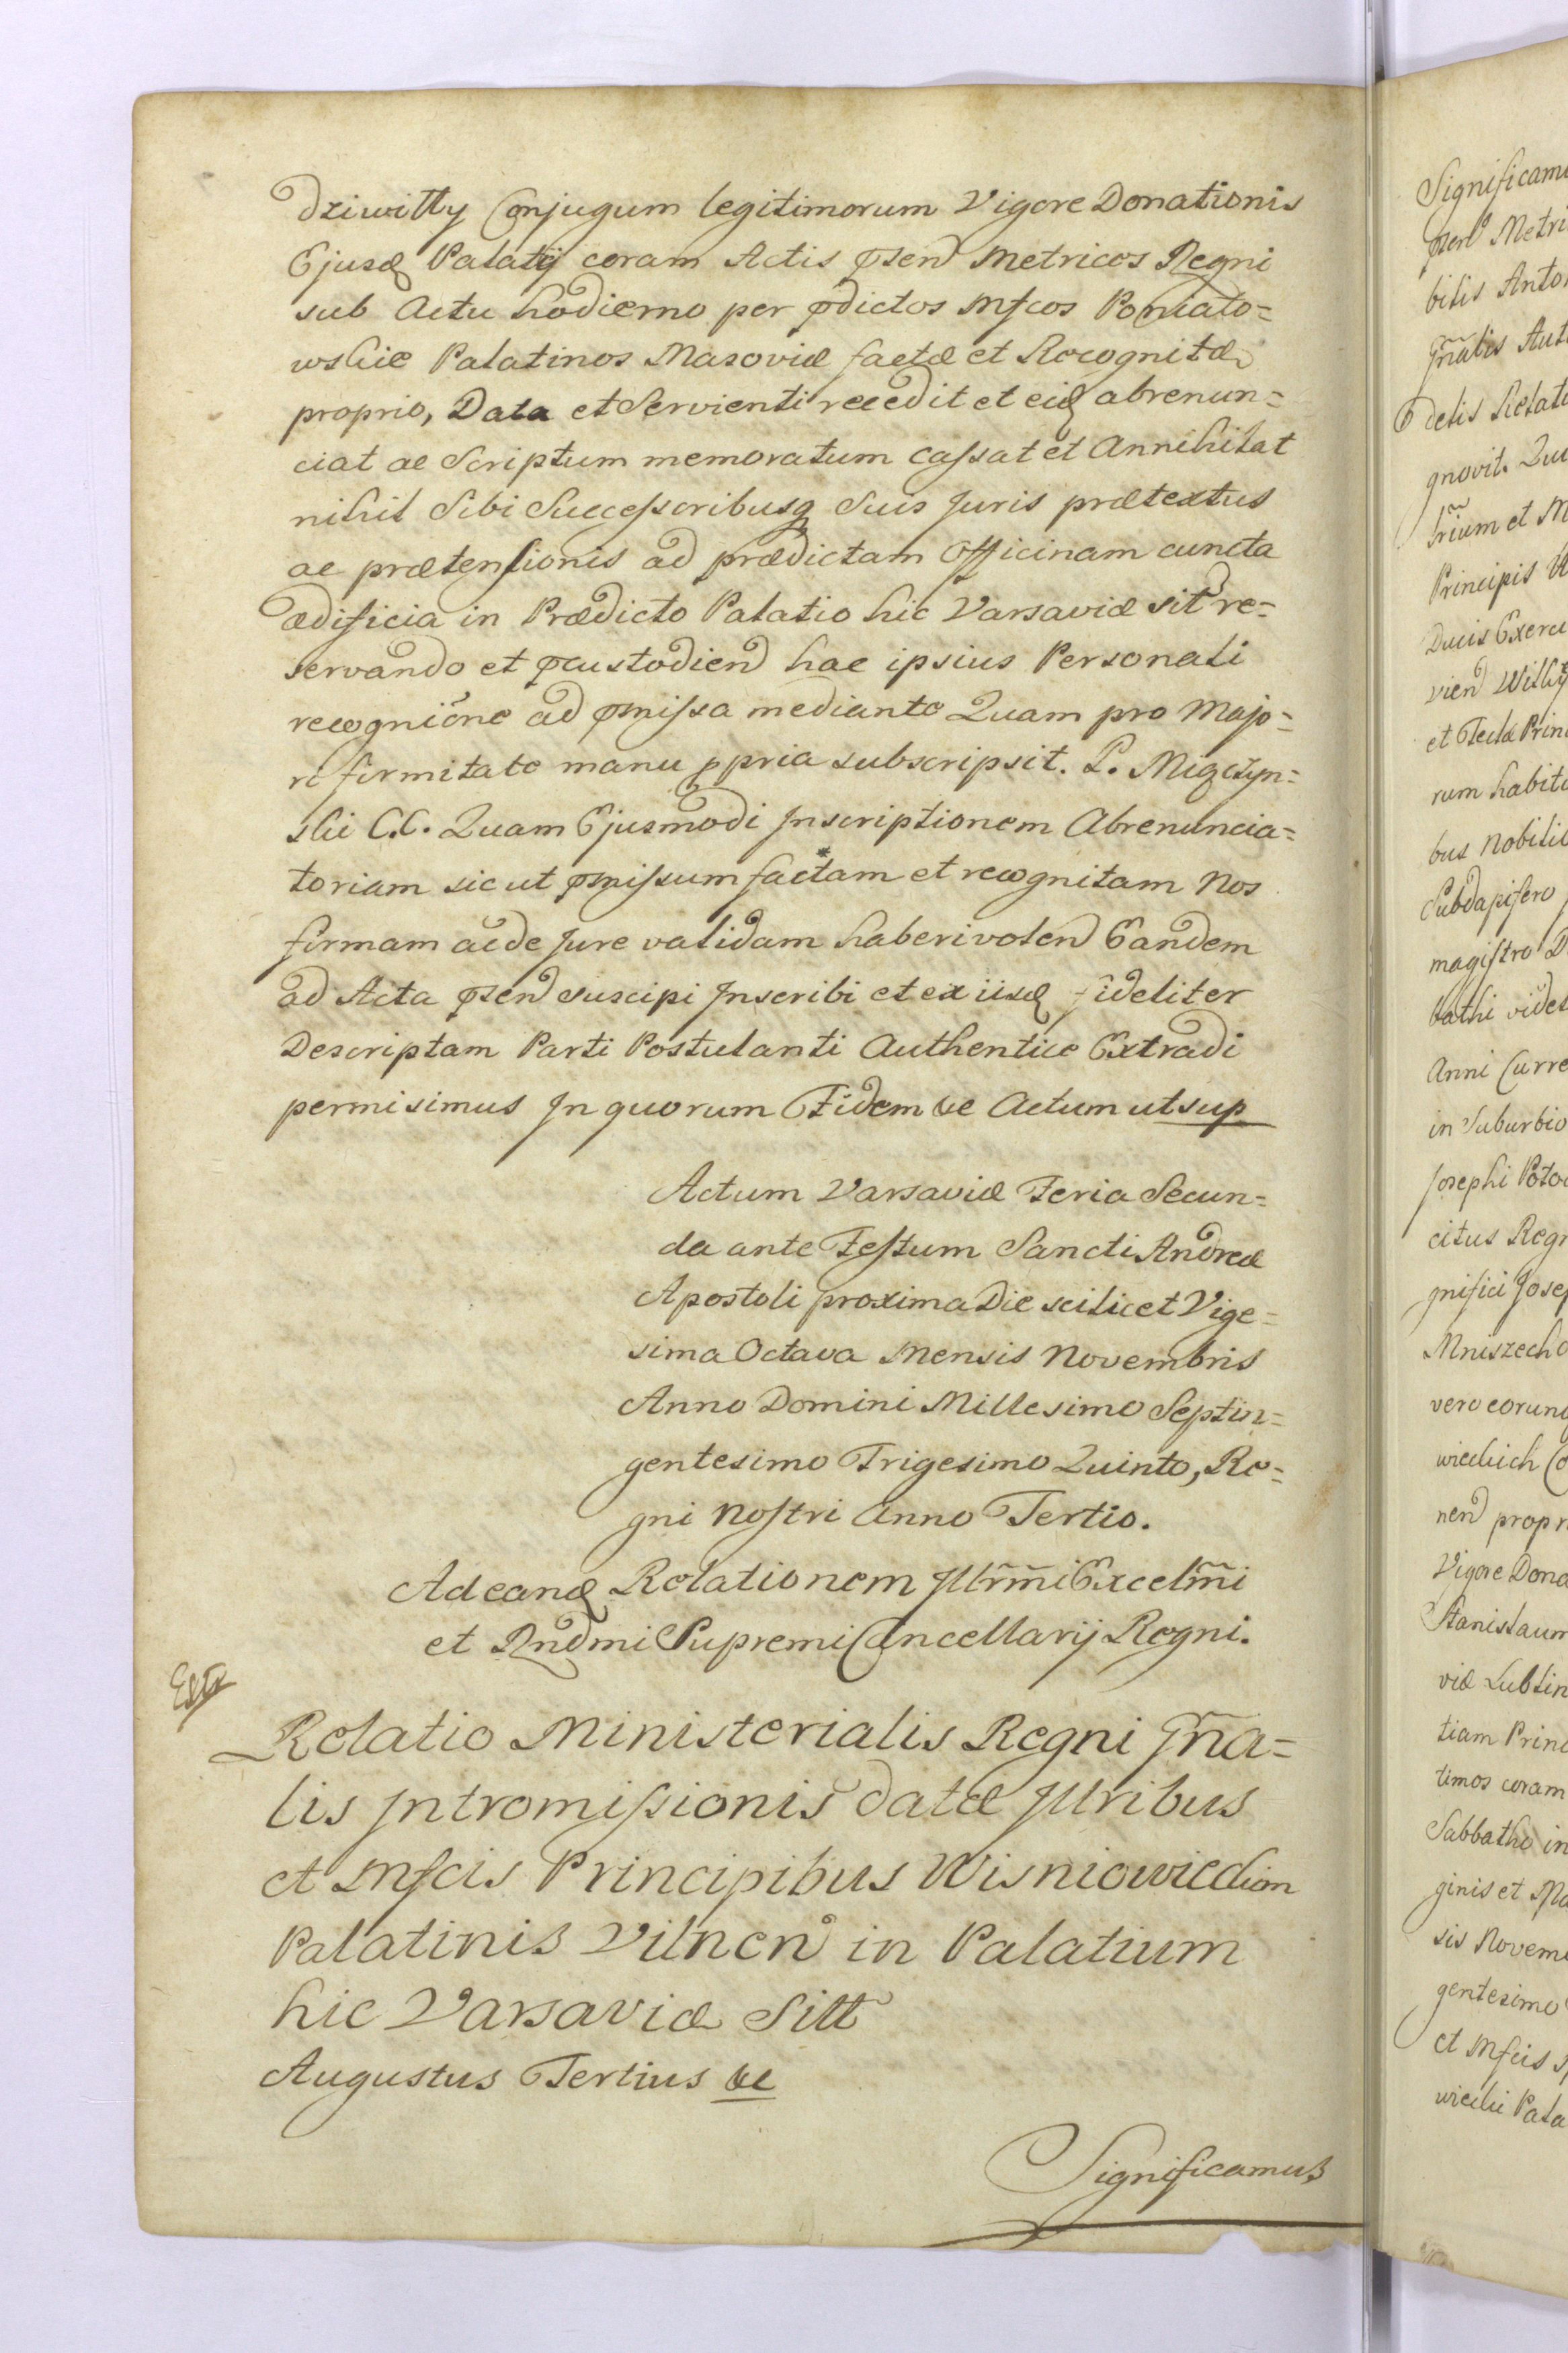 dziwitty Conjugum legitimorum Vigore Donationis
Ejusd Palatij coram Actis pnsen Metricos Regni
sub Actu hodierno per pdictos Mfcos Poniato=
wskie Palatinos Masoviæ factæ et Recognitæ
proprio, Data et Servienti recedit et eid abrenun=
ciat ac Scriptum memoratum cassat et Annihilat
nihil Sibi Successoribusq Suis Juris prætextus
ac prætensionis ad prædictam Officinam cuncta
ædificia in Prædicto Palatio hic Varsaviæ sit re=
servando et pcustodien hac ipsius Personali
recogniõne ad pmissa mediante Quam pro Majo=
ri firmitate manu ppria subscripsit. P. Miączyn=
ski C.C. Quam Ejusmodi Inscriptionem Abrenuncia=
toriam sicut pmissum factam et recognitam Nos
firmam acde Jure validam haberi volen Eandem
ad Acta psen suscipi Inscribi et ex iisd fideliter
Descriptam Parti Postulanti Authentice Extradi
permisimus In quorum Fidem &c Actum ut sup
Actum Varsaviæ Feria Secun=
da ante Festum Sancti Andreæ
Apostoli proxima Die scilicet Vige=
sima Octava Mensis Novembris
Anno Domini Millesimo Septin=
gentesimo Trigesimo Quinto, Re=
gni Nostri Anno Tertio.
Ad eand Relationem Illr̃mi Excelm̃i
et Rndmi Supremi Cancellarij Regni.
Relatio Ministerialis Regni Gñra=
lis Intromissionis datæ Illribus
et Mfcis Principibus Wisniowieckim
Palatinis Vilnen in Palatium
hic Varsaviæ Sitt
Augustus Tertius &c
Significamus
Significamu
psen Metri
bilis Anto
Gñalis Aut
delis Relat
gnovit. Qui
lrium et M
Principis
Ducis Exerci
vien
et Tecla Prin
rum habit
bus Nobili
Subdapifero
magistro D
bathi vide
Anni Curre
in Suburbio
Josephi Poto
citus Regn
gnifici Jose
Mniszech
vero eorun
wieckich Co
nen propr
Vigore Dona
Stanislaum
viæ Lublin
tiam Princ
timos coram
Sabbatho in
ginis et Ma
sis Novem
gentesimo
et Mfcis
wiecki Pala